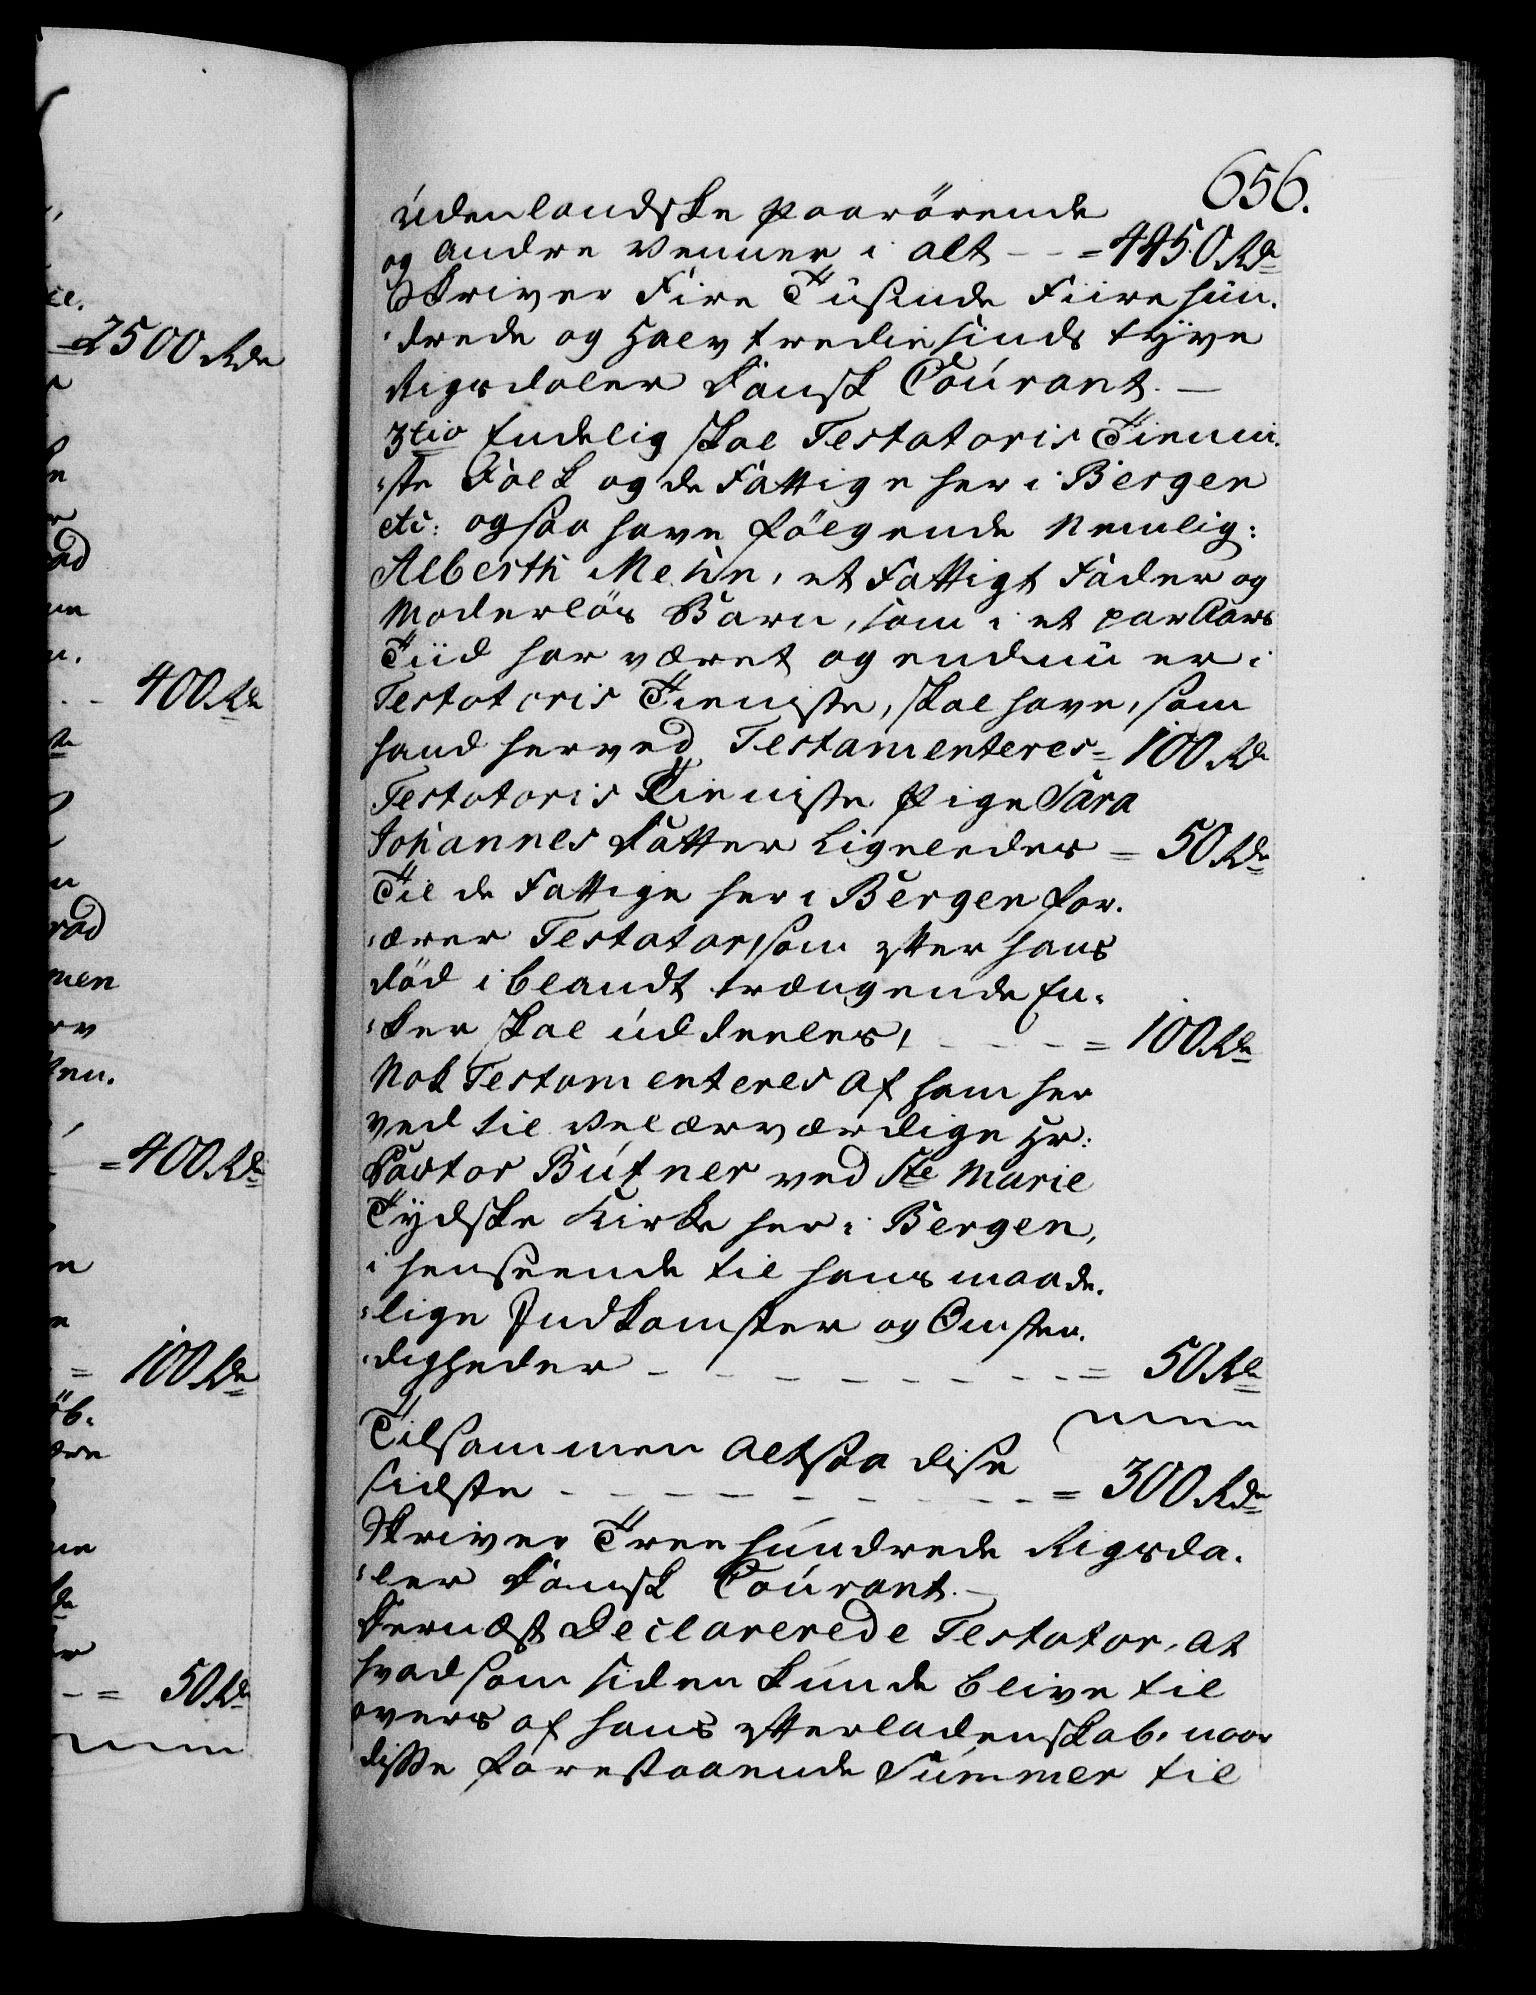 656.
udenlandske paarörende
og andre venner i alt - - = 4450 Rdr
Skriver Fire Tusinde Fiirehun-
drede og Halvtrediesinds tyve
Rigsdaler Dansk Courant. —
3tio Endelig skal Testatoris Tienni-
ste Folk og de Fattige her i Bergen
etc: ogsaa have fölgende Nemlig:
Alberth Mehn, et Fattigt Fader og
Moderlös Barn, som i et par Aars
Tiid har været og endnu er i
Testatoris Tieniste, skal have, som
hand herved Testamenteres = 100 Rdr
Testatoris Tieniste Pige Sara
Johannes Datter Ligeledes = 50 Rdr
Til de Fattige her i Bergen for-
ærer Testator, som efter hans
död iblandt trængende En-
ker skal uddeeles, - - - = 100 Rdr
Nok Testamenteres af ham her
ved til Velærværdige Hr:
Pastor Butner ved Ste Marie
Tydske Kirke her i Bergen,
i henseende til hans maade-
lige Indkomster og Omsten-
digheder - - - - - - - - = 50 Rdr
Tilsammen altsaa disse
sidste - - - - - - - - = 300 Rdr
Skriver Tree hundrede Rigsda-
ler Dansk Courant. —
Dernæst Declarerede Testator, at
hvad som siden kunde blive til
overs af hans efterladenskab, naar
disse forestaaende Summer til
2500 Rdr
400 Rdr
= 400 Rdr
= 100 Rdr
- = 50 Rdr